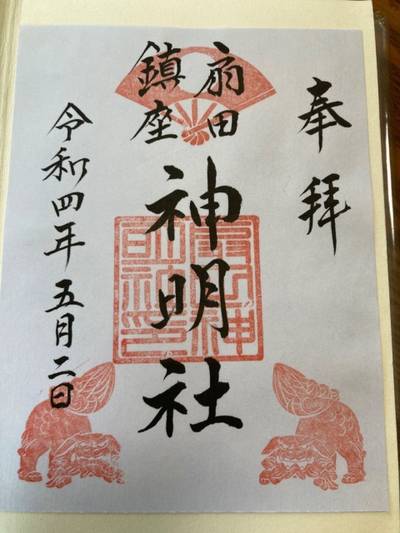 奉拝
扇田
鎮座
神明社
令和四年五月二日